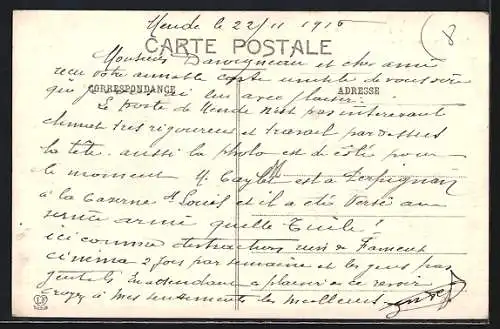 Mende le 22/11 1916
CARTE POSTALE
Monsieur Darvigneau et cher ami
reçu votre aimable carte inutile de vous dire
CORRESPONDANCE
ADRESSE
que j'ai lu avec plaisir.
Le poste de Mende n'est pas intéressant
climat très rigoureux et travail par dessus
la tête. aussi la photo est de côté pour
le moment M. Caylet est à Perpignan
à la Caserne St Louis et il a été versé au
service armé quelle Tuile!
ici comme distractions rien
cinéma 2 fois par semaine et les gens pas
gentils En attendant le plaisir de ce revoir
croyez à mes sentiments les meilleurs